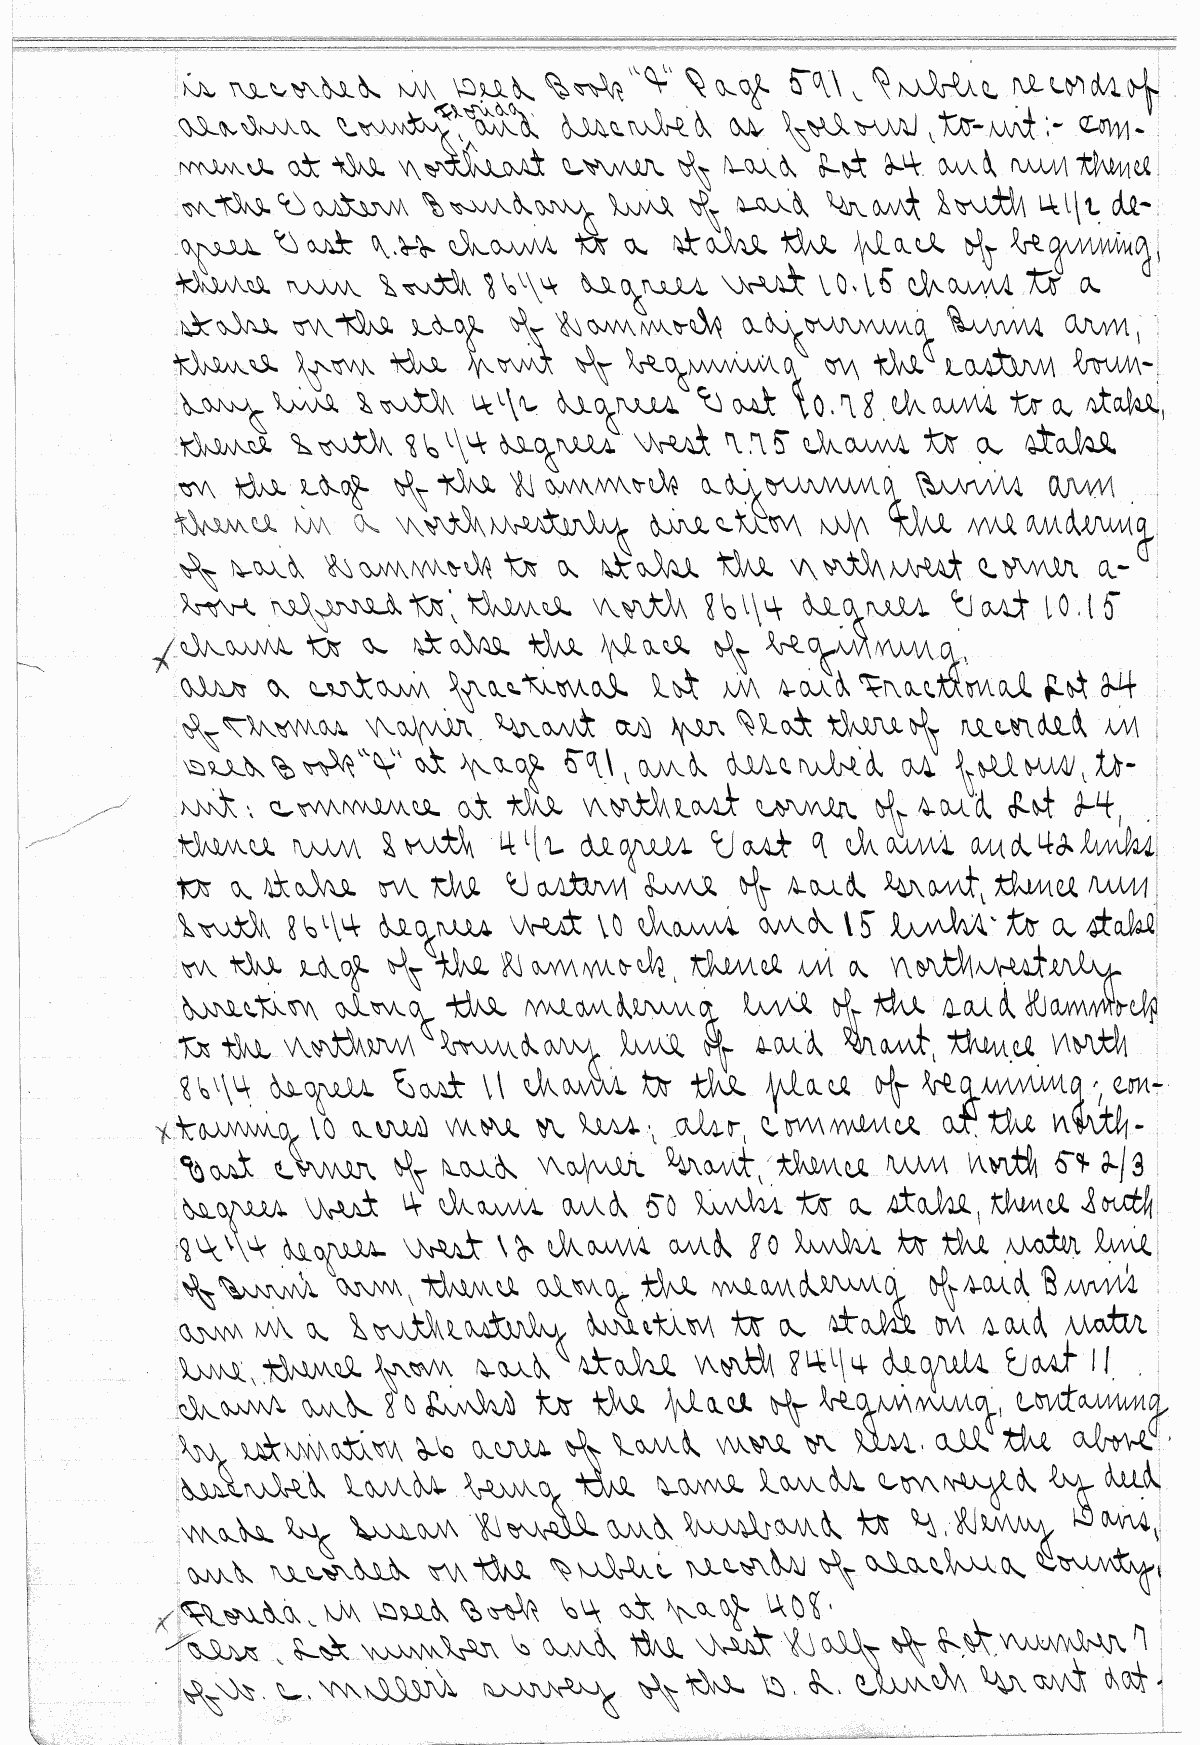 is recorded in Deed Book "I" Page 591, Public records of
Alachua County, Florida, and described as follows, to-wit:- Com-
mence at the northeast corner of said Lot 24 and run thence
on the Eastern Boundary line of said Grant South 4 1/2 de-
grees East 9.22 chains to a stake the place of beginning,
thence run South 86 1/4 degrees West 10.15 chains to a
stake on the edge of Hammock adjourning Bivins arm,
thence from the point of beginning on the eastern boun-
dary line South 4 1/2 degrees East 10.78 chains to a stake,
thence South 86 1/4 degrees West 7.75 chains to a stake
on the edge of the Hammock adjourning Bivins arm
thence in a northwesterly direction up the meandering
of said Hammock to a stake the northwest corner a-
bove referred to; thence north 86 1/4 degrees East 10.15
x chains to a stake the place of beginning.
also a certain fractional lot in said Fractional Lot 24
of Thomas Napier Grant as per Plat thereof recorded in
Deed Book "I" at page 591, and described as follows, to-
wit: Commence at the northeast corner of said Lot 24,
thence run South 4 1/2 degrees East 9 chains and 42 links
to a stake on the Eastern Line of said Grant, thence run
South 86 1/4 degrees West 10 chains and 15 links to a stake
on the edge of the Hammock, thence in a northwesterly
direction along the meandering line of the said Hammock
to the northern boundary line of said Grant, thence north
86 1/4 degrees East 11 chains to the place of beginning; con-
x taining 10 acres more or less; also, commence at the north-
East corner of said Napier Grant, thence run north 54 2/3
degrees West 4 chains and 50 links to a stake, thence South
84 1/4 degrees West 12 chains and 80 links to the water line
of Bivin's arm, thence along the meandering of said Bivin's
arm in a Southeasterly direction to a stake on said water
line, thence from said stake north 84 1/4 degrees East 11
chains and 80 Links to the place of beginning, containing
by estimation 26 acres of land more or less. all the above
described lands being the same lands conveyed by deed
made by Susan Howell and husband to G. Henry Davis,
and recorded on the Public records of Alachua County,
x Florida, in Deed Book 64 at page 408.
also, Lot number 6 and the West Half of Lot number 7
of W. C. Miller's survey of the D. L. Clinch Grant dat-